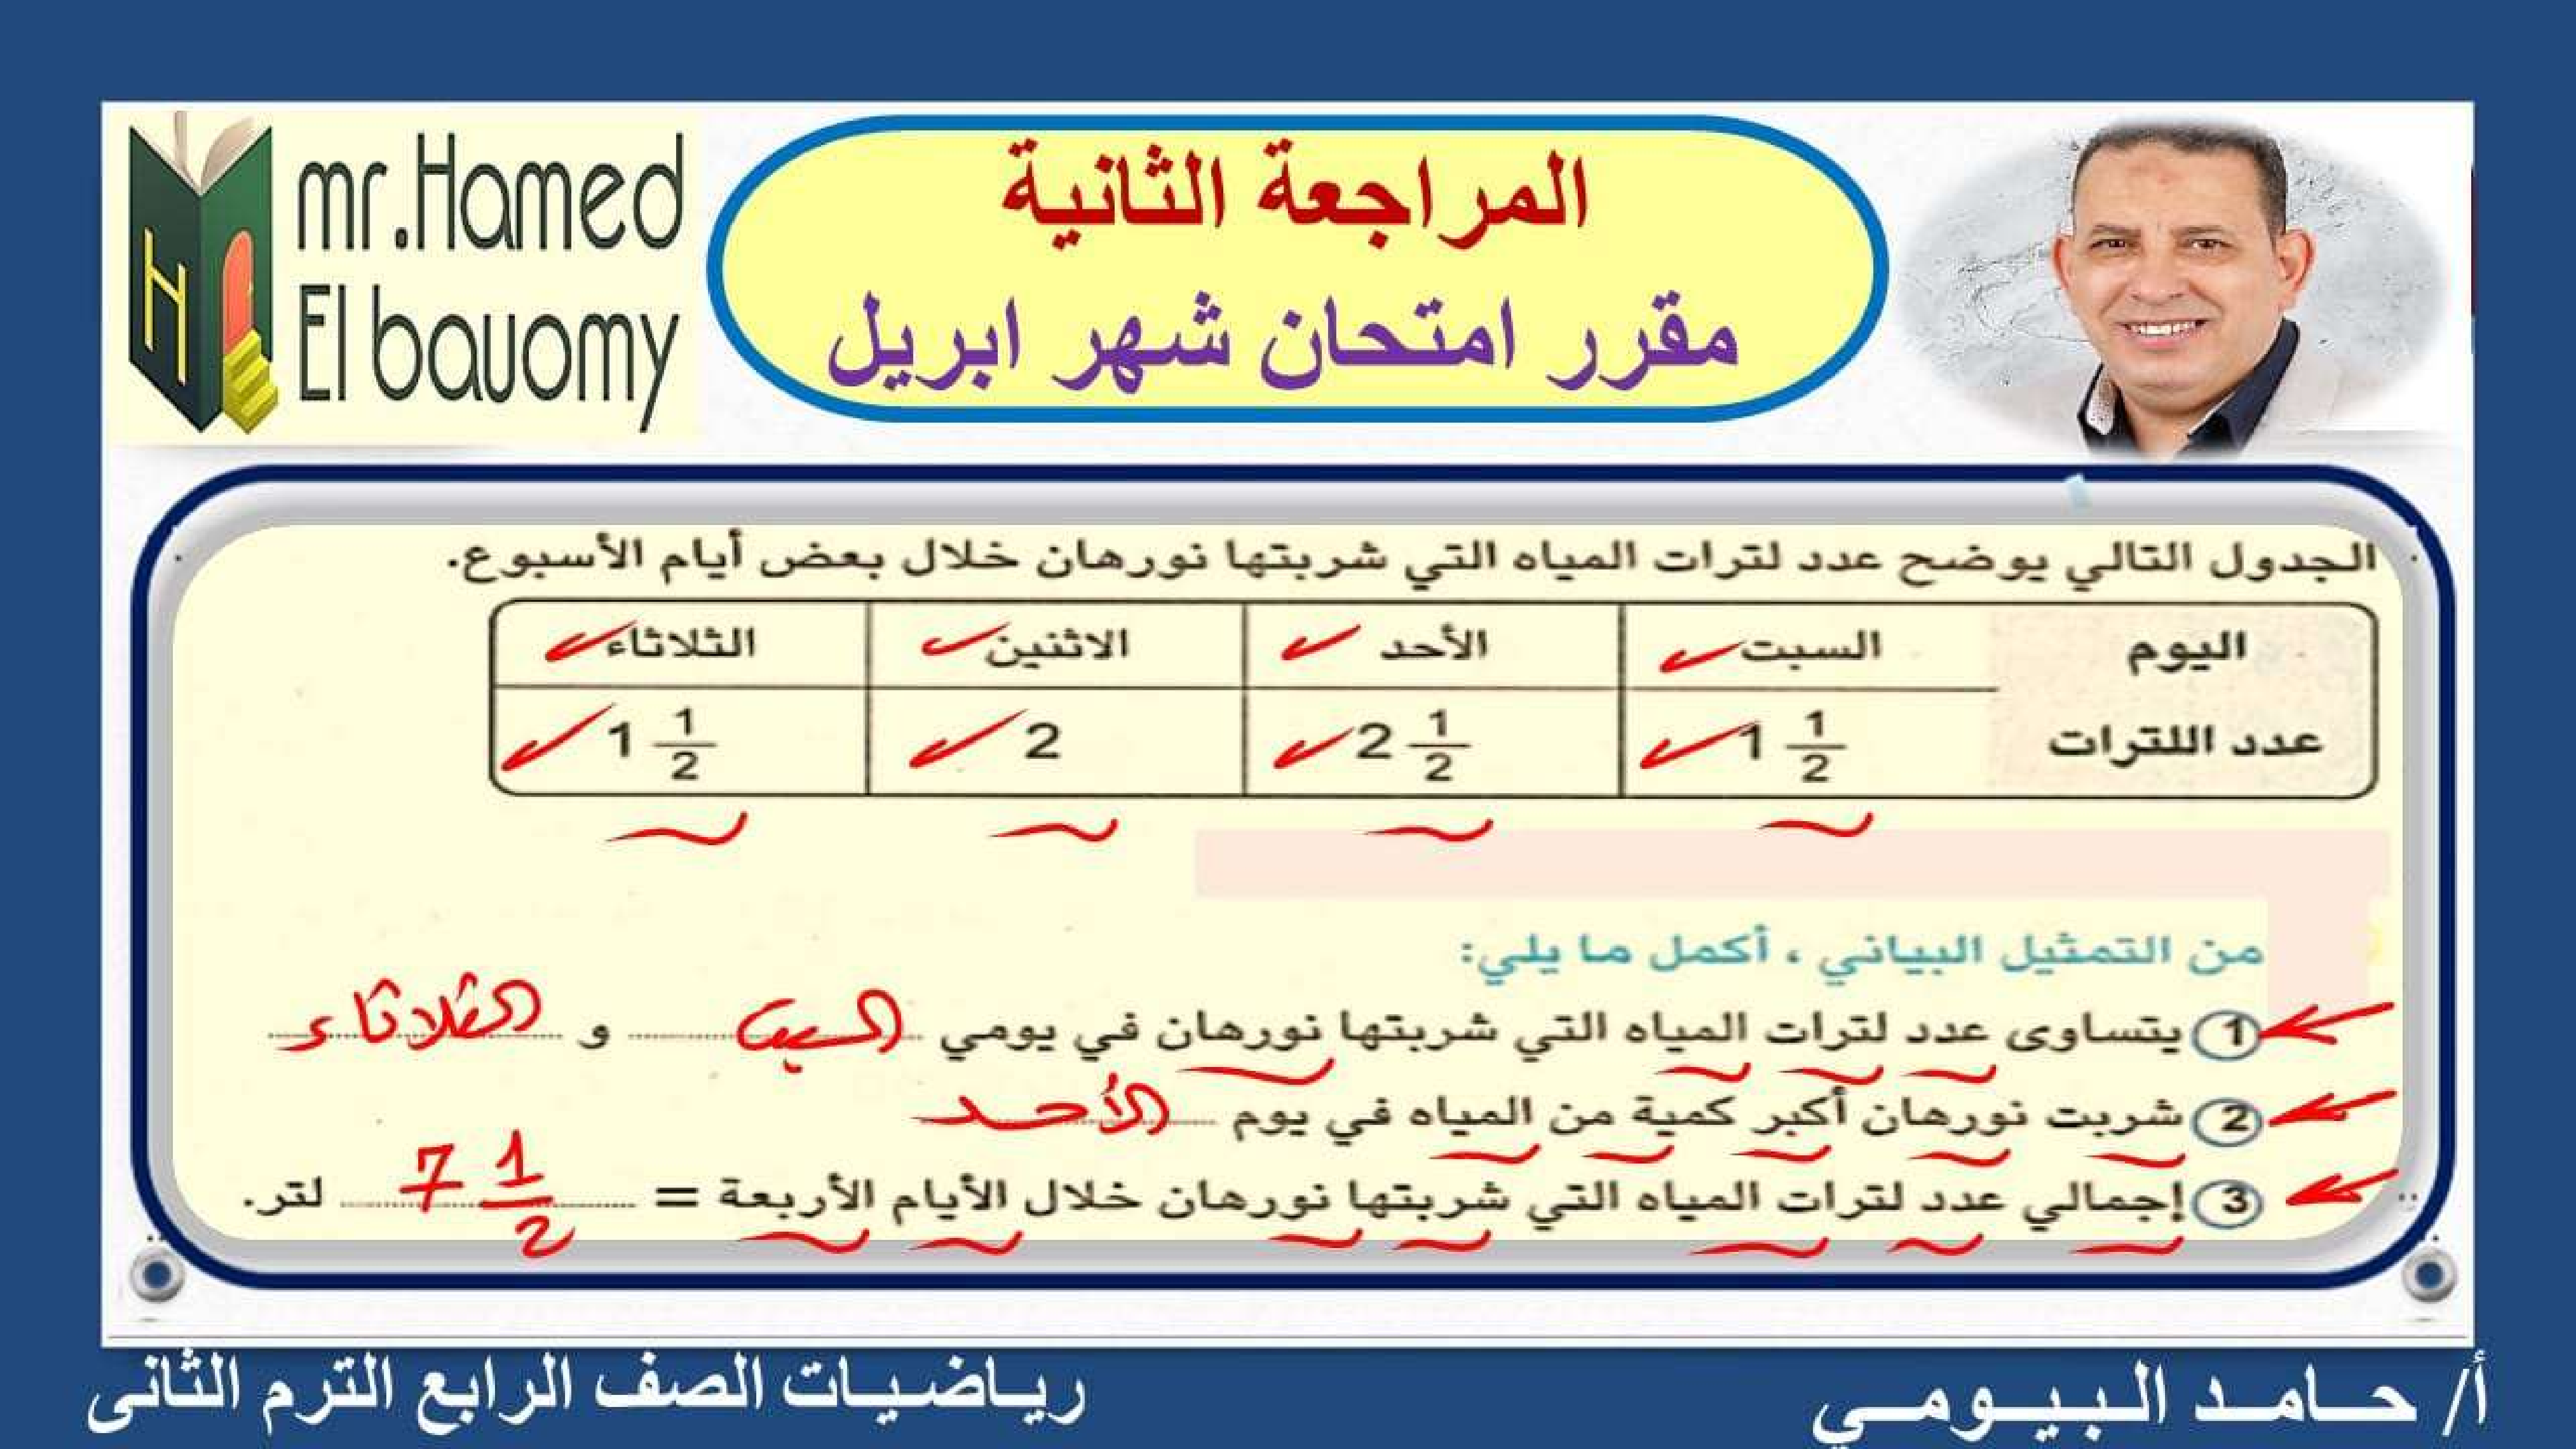 mr.Hamed
El bauomy
المراجعة الثانية
مقرر امتحان شهر ابريل
الجدول التالي يوضح عدد لترات المياه التي شربتها نورهان خلال بعض أيام الأسبوع.
اليوم السبت الأحد الاثنين الثلاثاء
عدد اللترات 1 1/2 2 1/2 2 1 1/2
من التمثيل البياني ، أكمل ما يلي:
1 يتساوى عدد لترات المياه التي شربتها نورهان في يومي السبت و الثلاثاء
2 شربت نورهان أكبر كمية من المياه في يوم الأحد
3 إجمالي عدد لترات المياه التي شربتها نورهان خلال الأيام الأربعة = 7 1/2 لتر.
أ/ حـامـد الـبـيـومـي
ريـاضـيـات الصف الرابع الترم الثانى